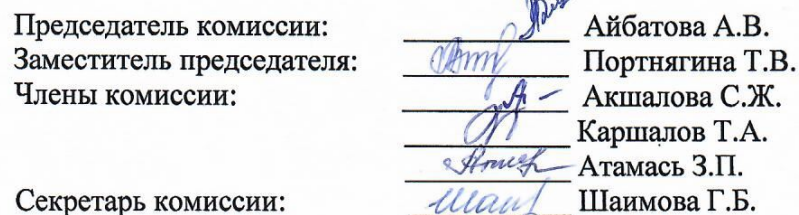 Председатель комиссии: Айбатова А.В.
Заместитель председателя: Портнягина Т.В.
Члены комиссии: Акшалова С.Ж.
Каршалов Т.А.
Атамась З.П.
Секретарь комиссии: Шаимова Г.Б.